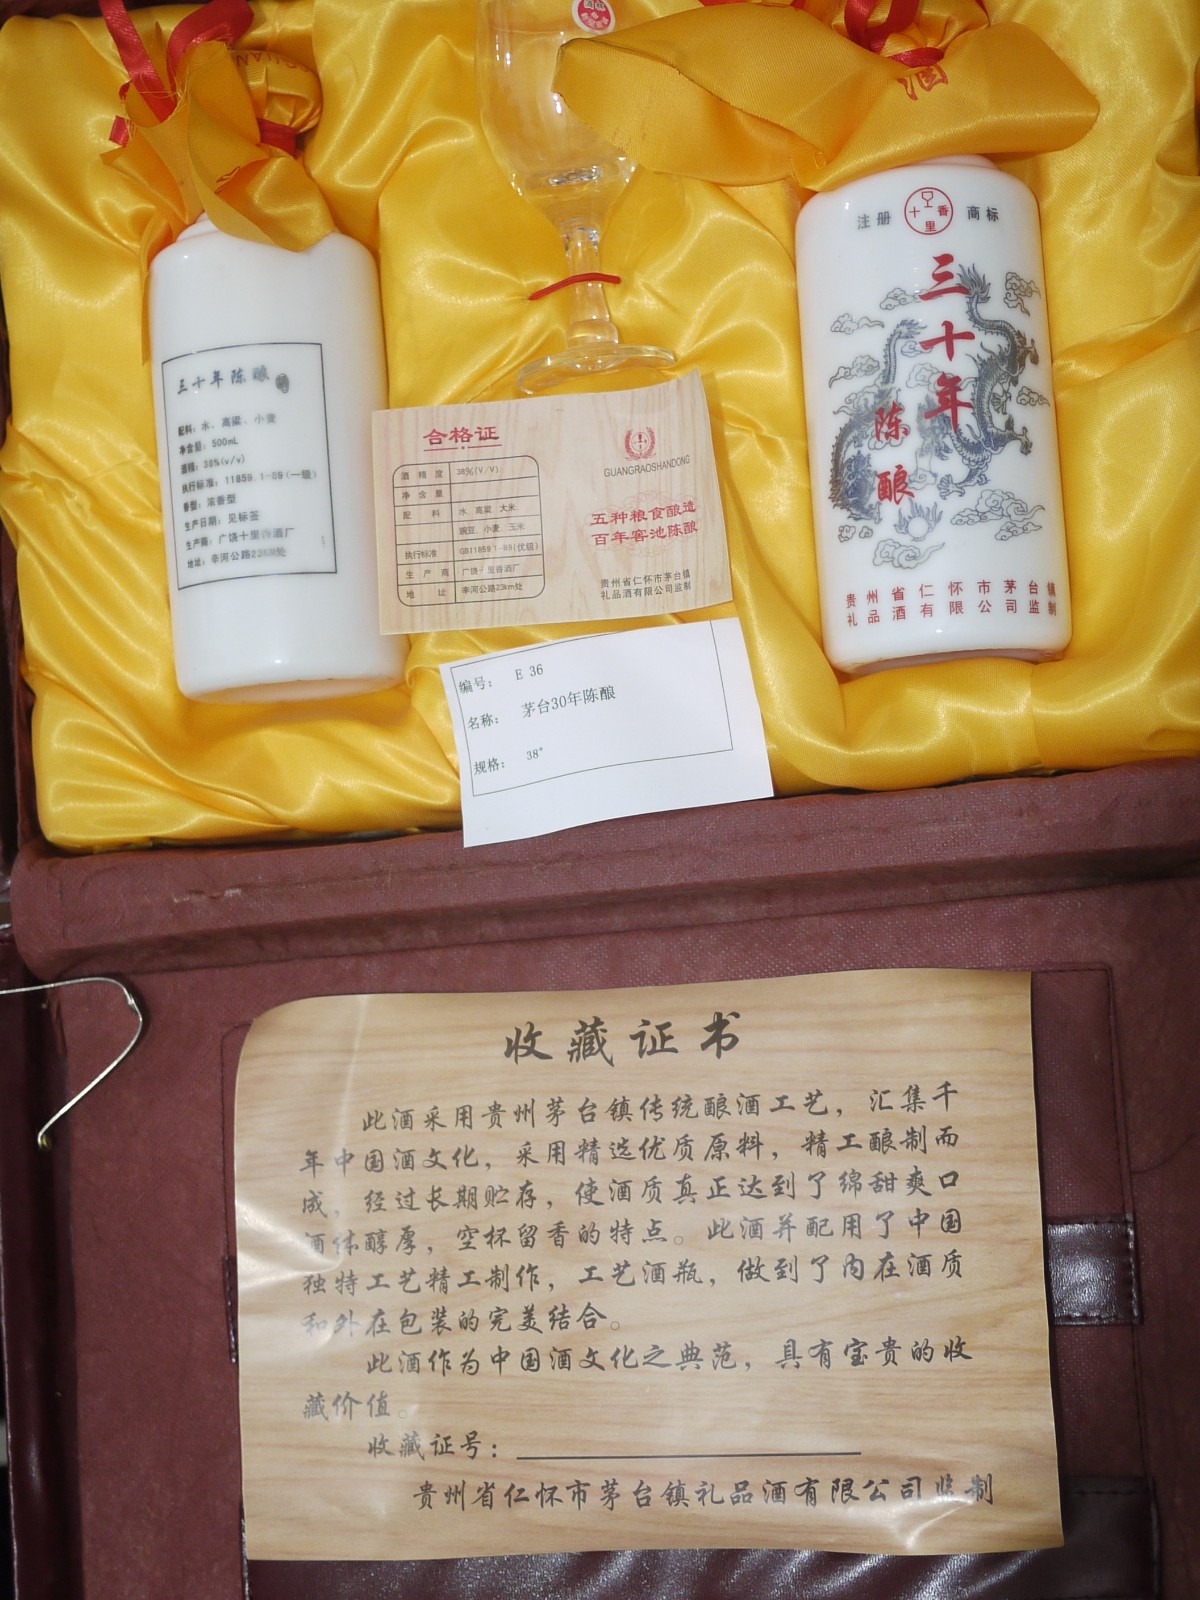 酒
注册
十里香
商标
三十年
陈酿
贵州省仁怀市茅台镇
礼品酒有限公司监制
三十年陈酿
配料：水、高粱、小麦
净含量：500mL
酒精：38%(v/v)
执行标准：11859.1-89(一级)
香型：浓香型
生产日期：见标签
生产商：广饶十里香酒厂
地址：辛河公路23KM处
合格证
酒精度 38%(V/V)
净含量
配料 水 高粱 大米
豌豆 小麦 玉米
执行标准 GB11859.1-89(优级)
生产商 广饶十里香酒厂
地址 辛河公路23km处
GUANGRAOSHANDONG
五种粮食酿造
百年窖池陈酿
贵州省仁怀市茅台镇
礼品酒有限公司监制
编号： E 36
名称： 茅台30年陈酿
规格： 38°
收藏证书
此酒采用贵州茅台镇传统酿酒工艺，汇集千
年中国酒文化，采用精选优质原料，精工酿制而
成，经过长期贮存，使酒质真正达到了绵甜爽口
酒体醇厚，空杯留香的特点。此酒并配用了中国
独特工艺精工制作，工艺酒瓶，做到了内在酒质
和外在包装的完美结合。
此酒作为中国酒文化之典范，具有宝贵的收
藏价值。
收藏证号：
贵州省仁怀市茅台镇礼品酒有限公司监制